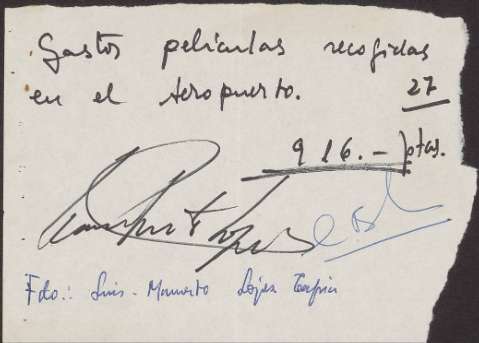 Gastos películas recogidas
en el Aeropuerto. 27
916.- ptas.
Fdo.: Luis-Mamerto López Tapia